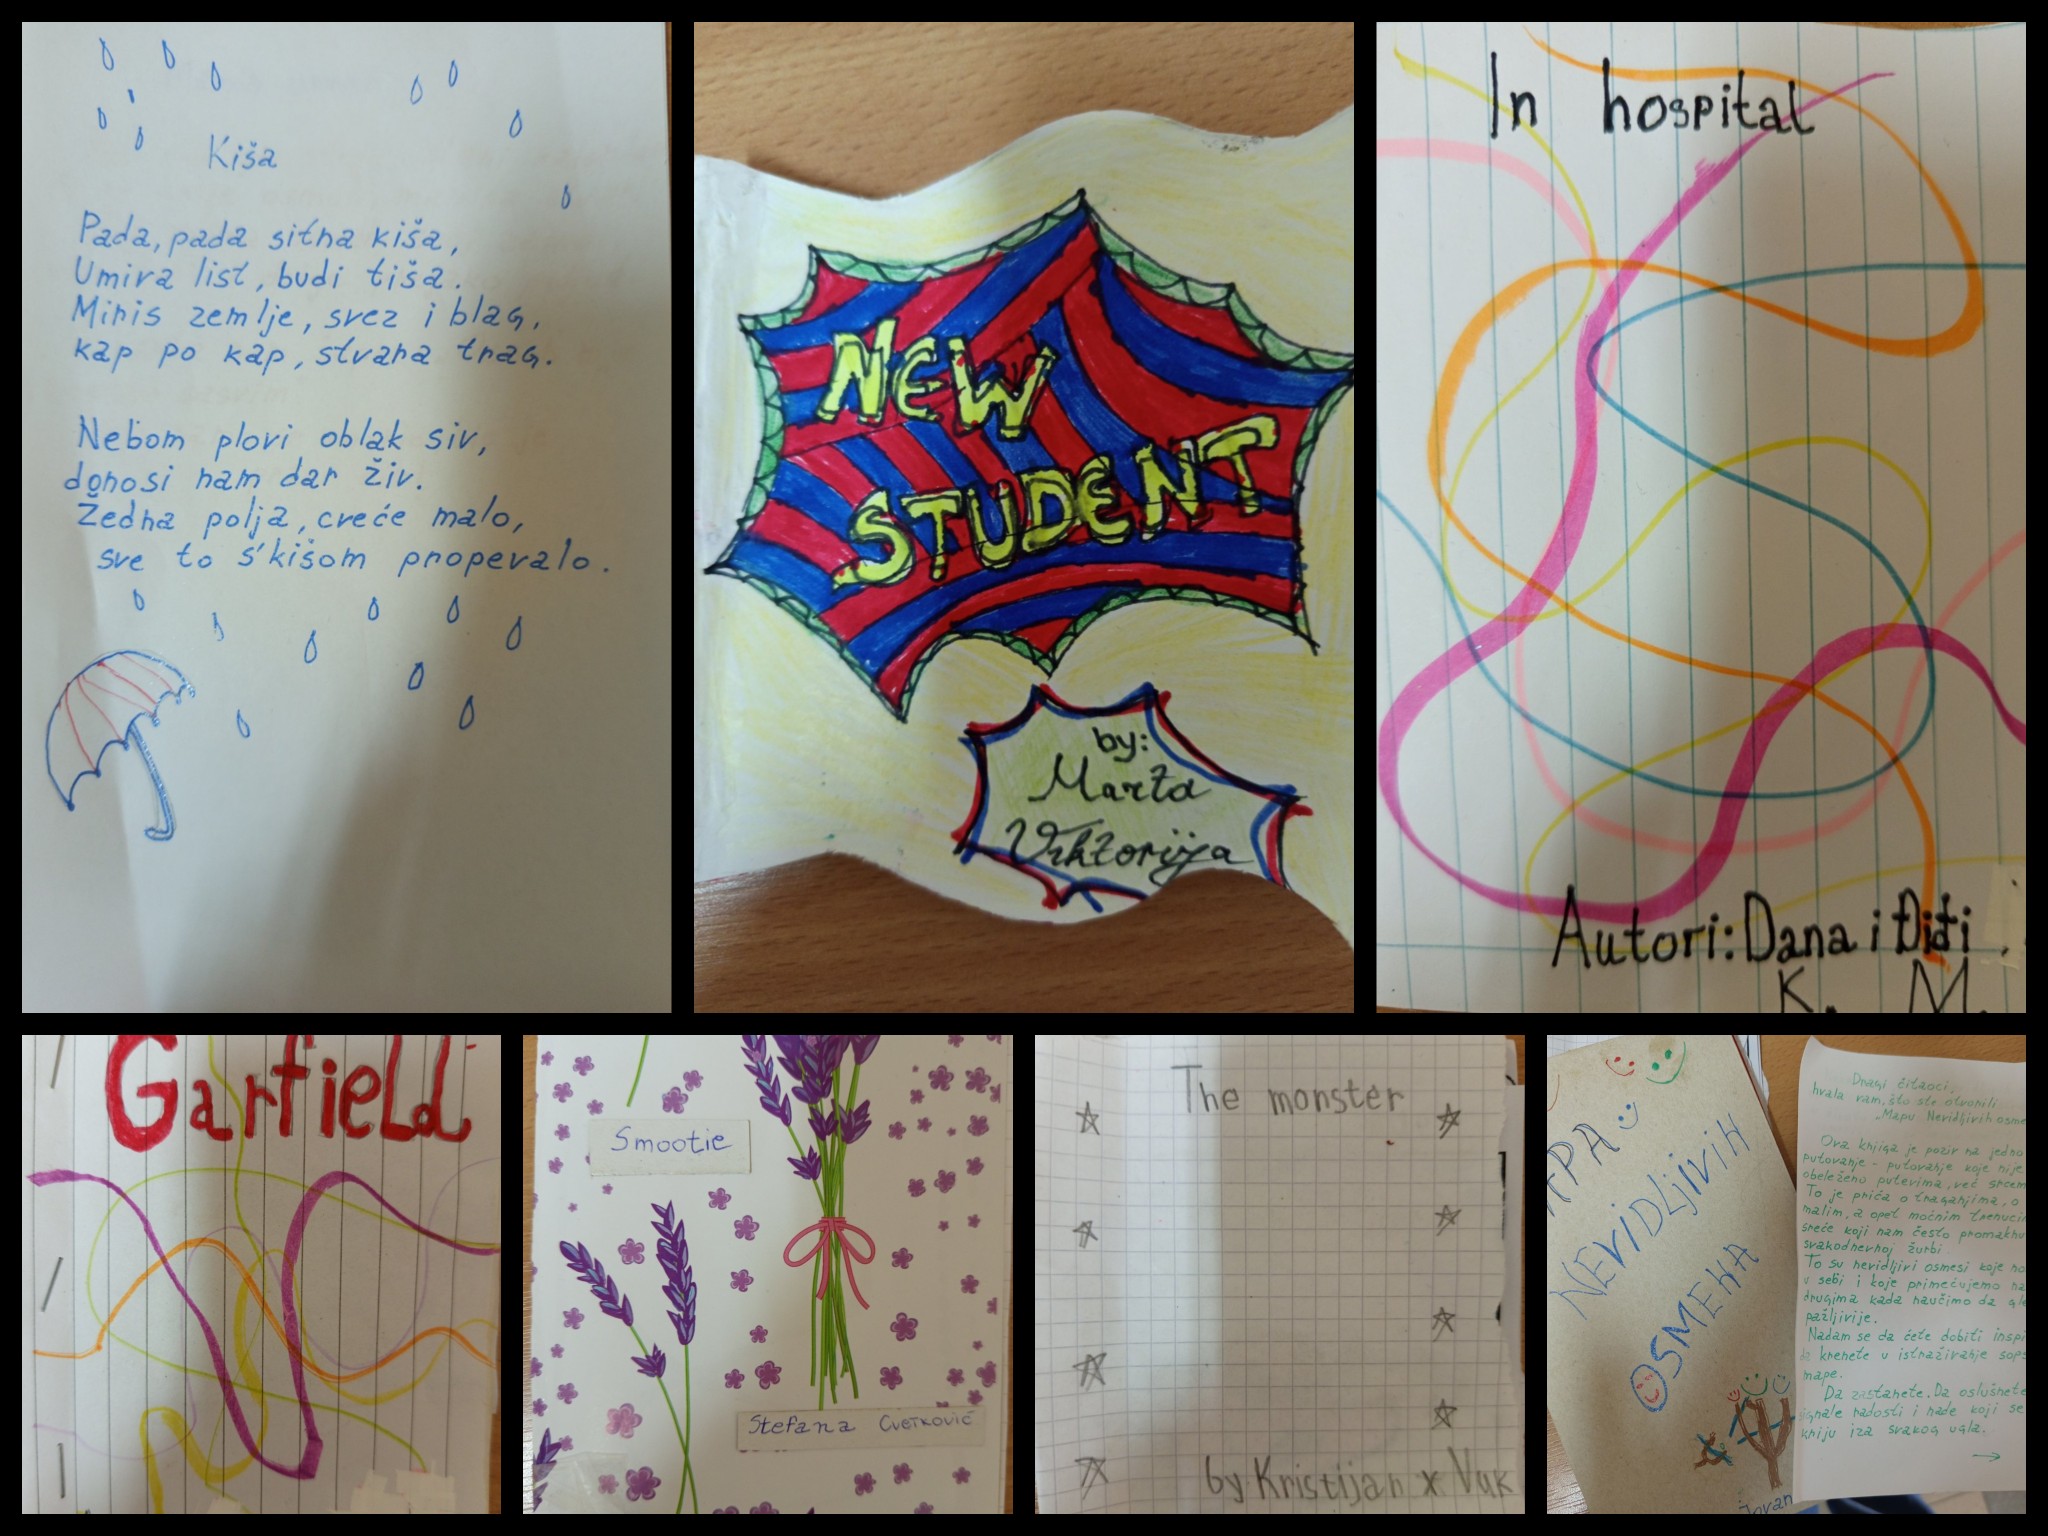 Kiša
Pada, pada sitna kiša,
Umira list, budi tiša.
Miris zemlje, svez i blag,
kap po kap, stvara trag.
Nebom plovi oblak siv,
donosi nam dar živ.
Žedna polja, cveće malo,
sve to s'kišom propevalo.
NEW
STUDENT
by:
Marta
Viktorija
In hospital
Autori: Dana i Điđi
K. M.
Garfield
Smootie
Stefana Cvetković
The monster
by Kristijan x Vuk
NEVIDLJIVIH
OSMEHA
Jovan
Dragi čitaoci,
hvala vam, što ste otvorili
"Mapu Nevidljivih osme
Ova knjiga je poziv na jedno
putovanje - putovanje koje nije
obeleženo putevima, već srcem
To je priča o traganjima, o
malim, a opet moćnim trenuci
sreće koji nam često promaknu
svakodnevnoj žurbi.
To su nevidljivi osmesi koje no
u sebi i koje primećujemo na
drugima kada naučimo da gle
pažljivije.
Nadam se da ćete dobiti inspi
da krenete u istraživanje sops
mape.
Da zastanete. Da oslušnete
signale radosti i nade koji se
kriju iza svakog ugla.